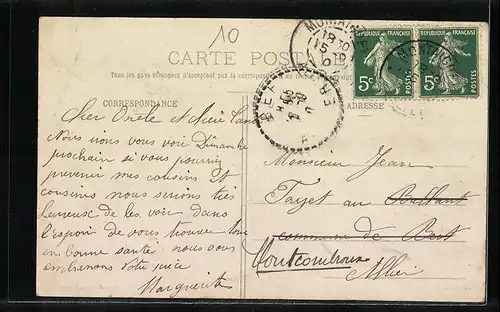 10
CARTE POSTALE
Tous les pays étrangers n'acceptent pas la correspondance au
CORRESPONDANCE
ADRESSE
RÉPUBLIQUE FRANÇAISE
5c
POSTES
RÉPUBLIQUE FRANÇAISE
5c
POSTES
Cher Oncle et chère Tante
Nous irons vous voir Dimanche
prochain si vous pourriez
prevenir mes cousins et
cousines nous serions très
heureux de les voir dans
l'espoir de vous trouver tous
en bonne santé nous vous
embrassons votre nièce
Marguerite
Monsieur Jean
Tayet au
commune de Bert
Montcombroux
Allier